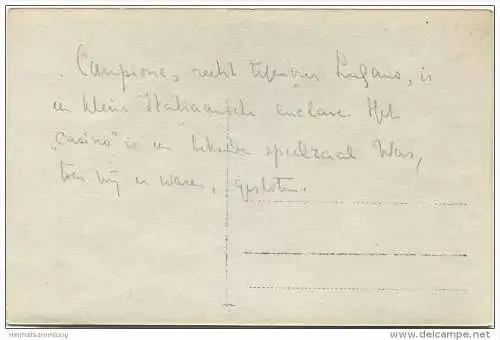 Campione, recht tegenover Lugano, is
een kleine Italiaansche enclave. Het
„Casino” is een bekende speelzaal. Was,
toen wij er waren, gesloten.
Heimatsammlung
www.delcampe.net